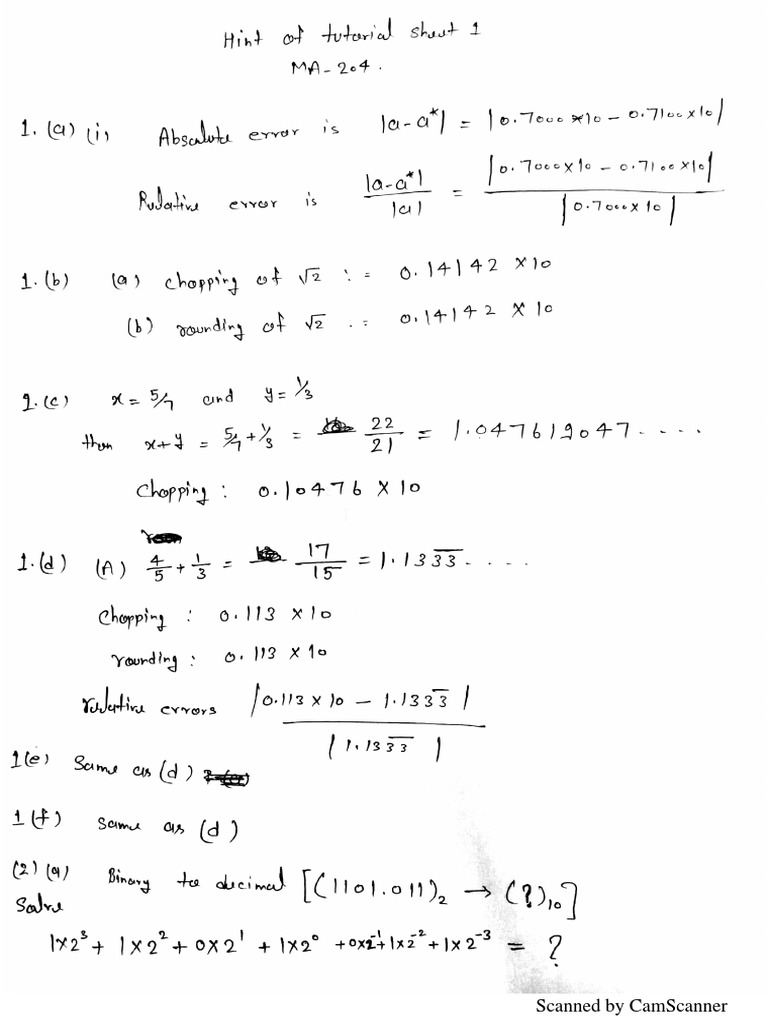 Hint of tutorial sheet 1
MA-204.
1. (a) (i) Absolute error is |a-a*| = |0.7000 × 10 - 0.7100 × 10|
Relative error is |a-a*| / |a| = |0.7000 × 10 - 0.7100 × 10| / |0.7000 × 10|
1. (b) (a) chopping of √2 := 0.14142 × 10
(b) rounding of √2 := 0.14142 × 10
1. (c) x = 5/7 and y = 1/3
then x+y = 5/7 + 1/3 = 22/21 = 1.047619047....
Chopping: 0.10476 × 10
1. (d) (A) 4/5 + 1/3 = 17/15 = 1.133̅3̅....
Chopping: 0.113 × 10
rounding: 0.113 × 10
relative errors |0.113 × 10 - 1.1333̅| / |1.133̅3̅|
1(e) Same as (d)
1 (f) same as (d)
(2) (a) Binary to decimal [(1101.011)₂ → (?)₁₀]
Solve
1×2³ + 1×2² + 0×2¹ + 1×2⁰ + 0×2⁻¹ + 1×2⁻² + 1×2⁻³ = ?
Scanned by CamScanner